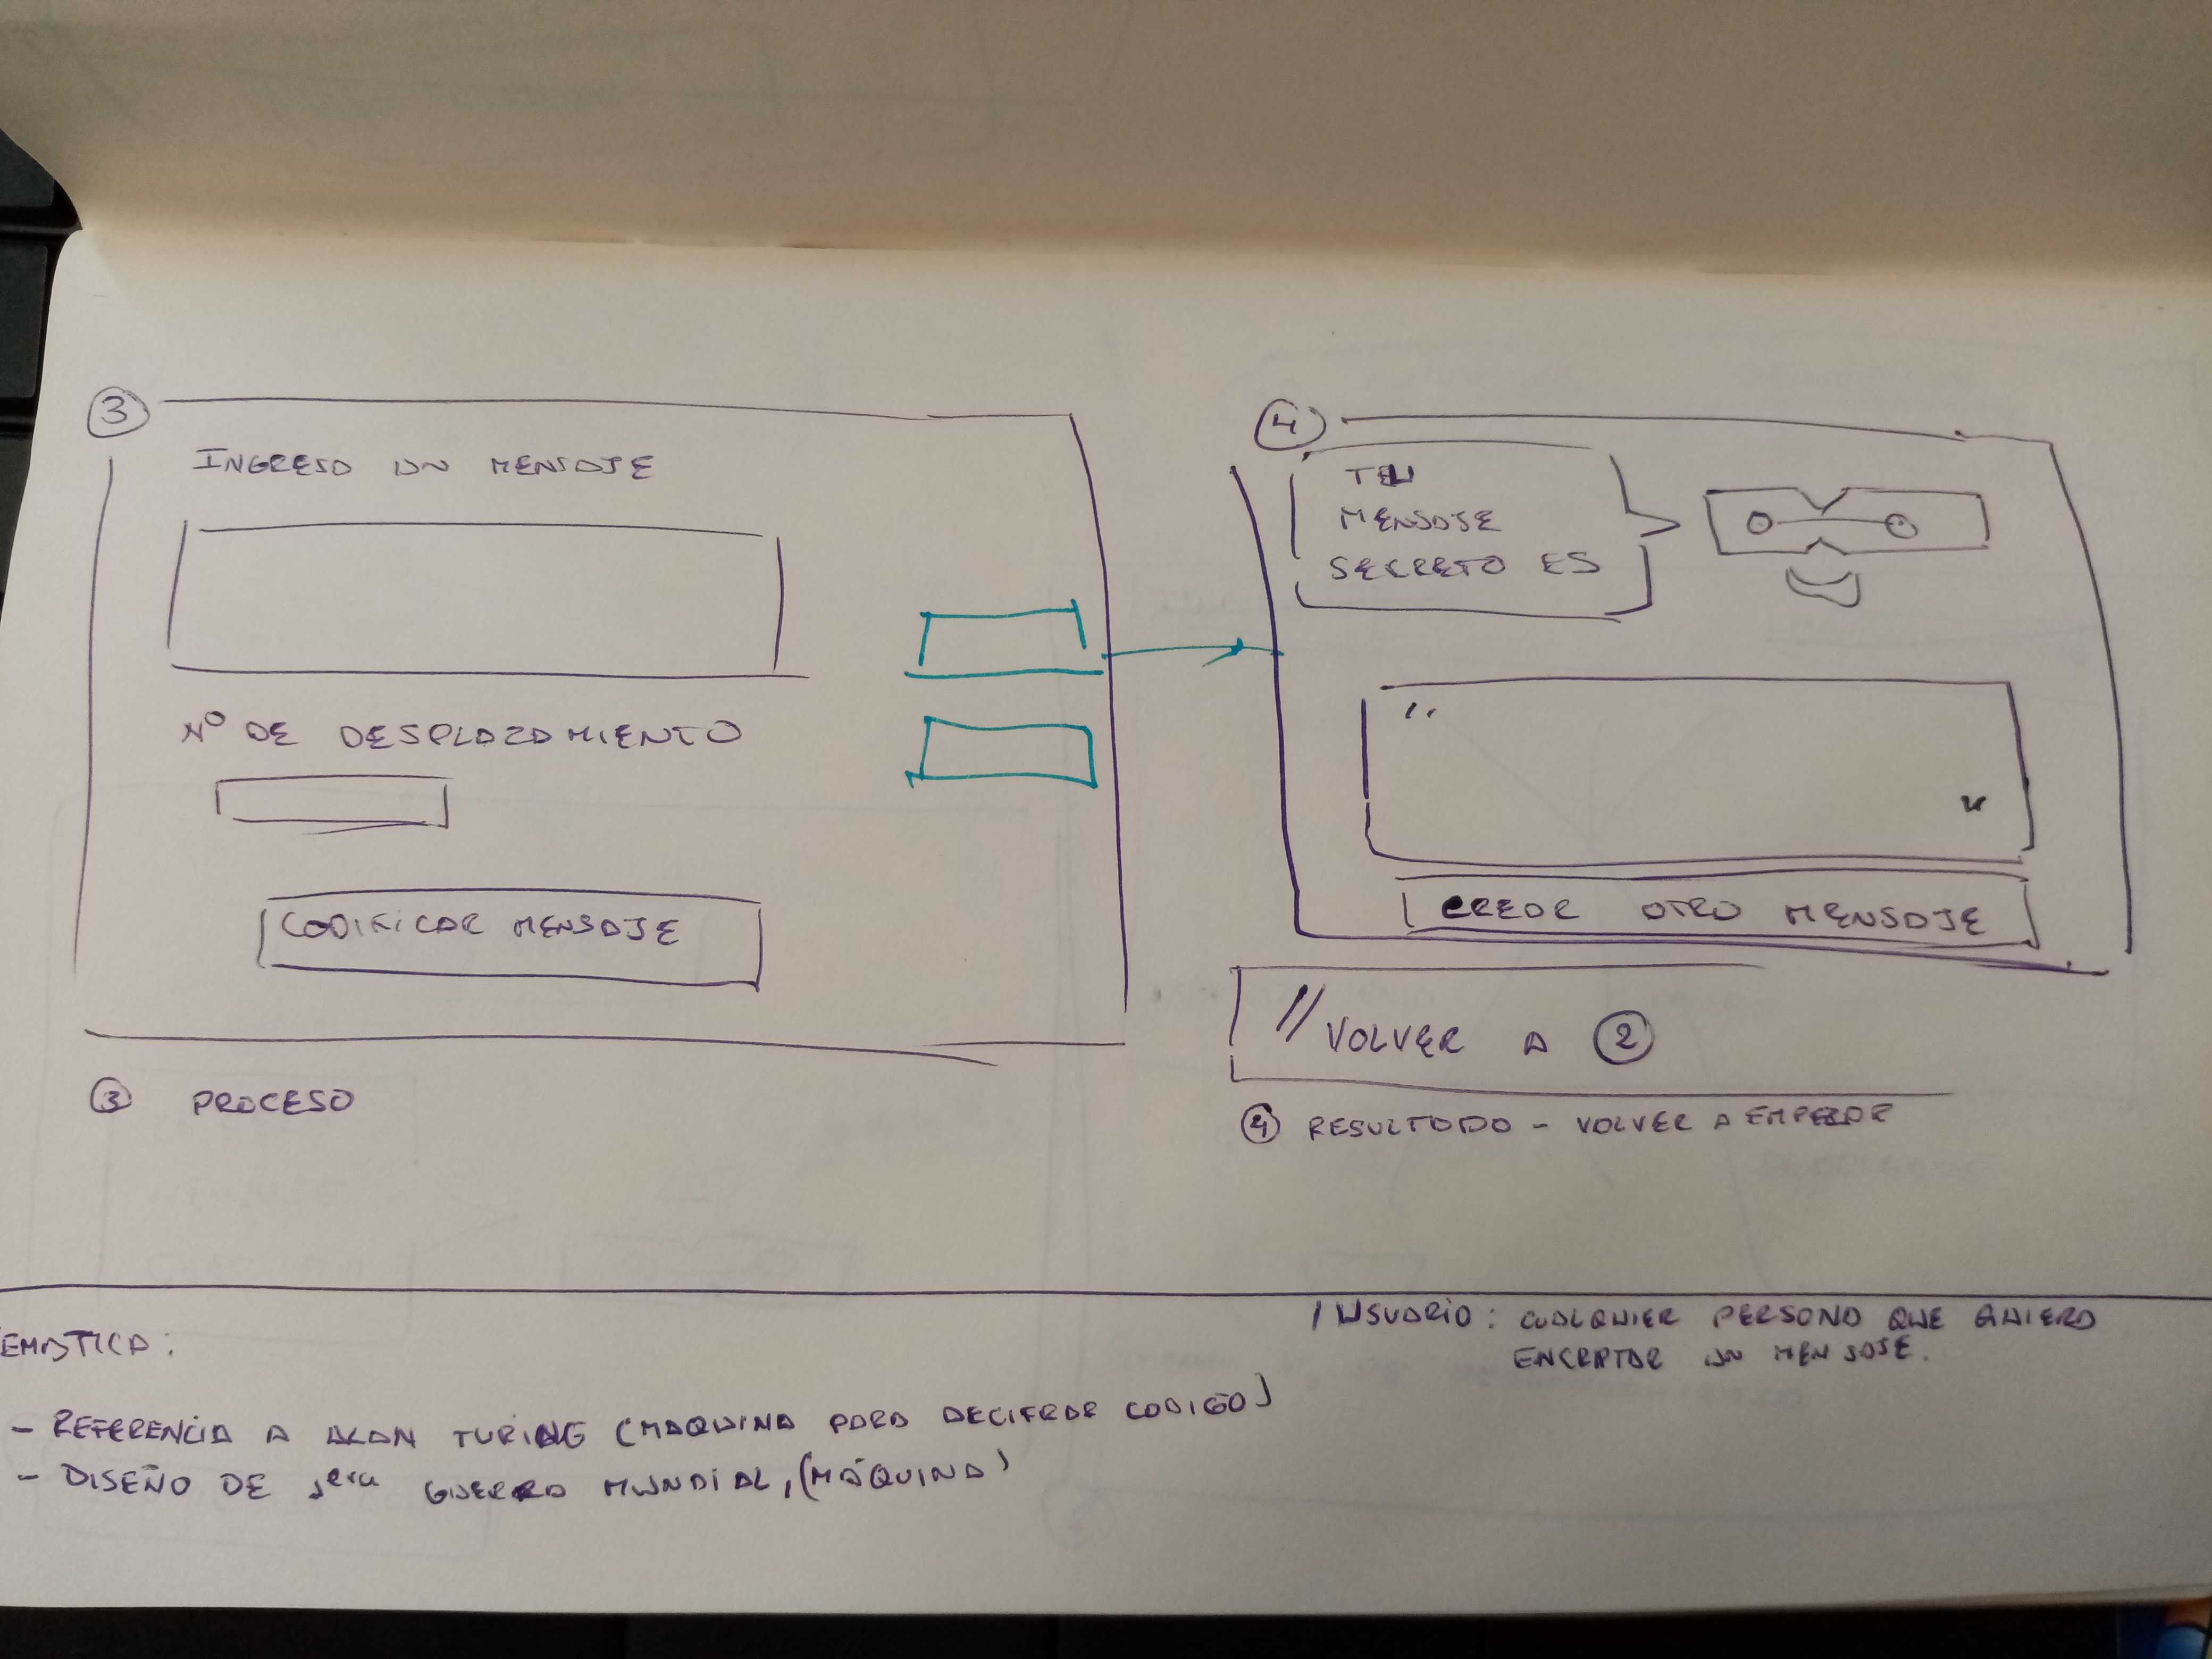 3
INGRESA UN MENSAJE
Nº DE DESPLAZAMIENTO
CODIFICAR MENSAJE
3 PROCESO
4
TU
MENSAJE
SECRETO ES
"
"
CREAR OTRO MENSAJE
// VOLVER A 2
4 RESULTADO - VOLVER A EMPEZAR
EMATICA:
- REFERENCIA A ALAN TURING (MAQUINA PARA DECIFRAR CODIGO)
- DISEÑO DE 1era GUERRA MUNDIAL, (MÁQUINA)
/ USUARIO: CUALQUIER PERSONA QUE QUIERA
ENCRPTAR UN MENSAJE.